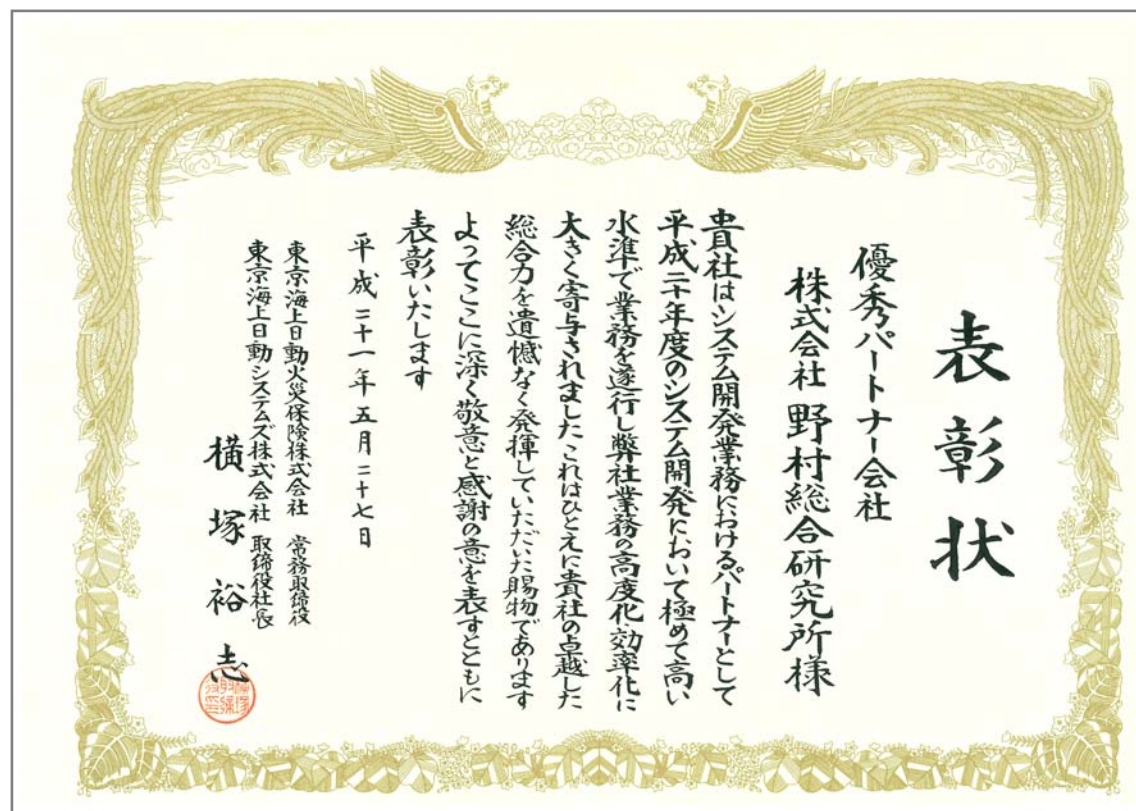 表彰状
優秀パートナー会社
株式会社 野村総合研究所様
貴社はシステム開発業務におけるパートナーとして
平成二十年度のシステム開発において極めて高い
水準で業務を遂行し弊社業務の高度化・効率化に
大きく寄与されましたこれはひとえに貴社の卓越した
総合力を遺憾なく発揮していただいた賜物であります
よってここに深く敬意と感謝の意を表すとともに
表彰いたします
平成二十一年五月二十七日
東京海上日動火災保険株式会社 常務取締役
東京海上日動システムズ株式会社 取締役社長
横塚裕志